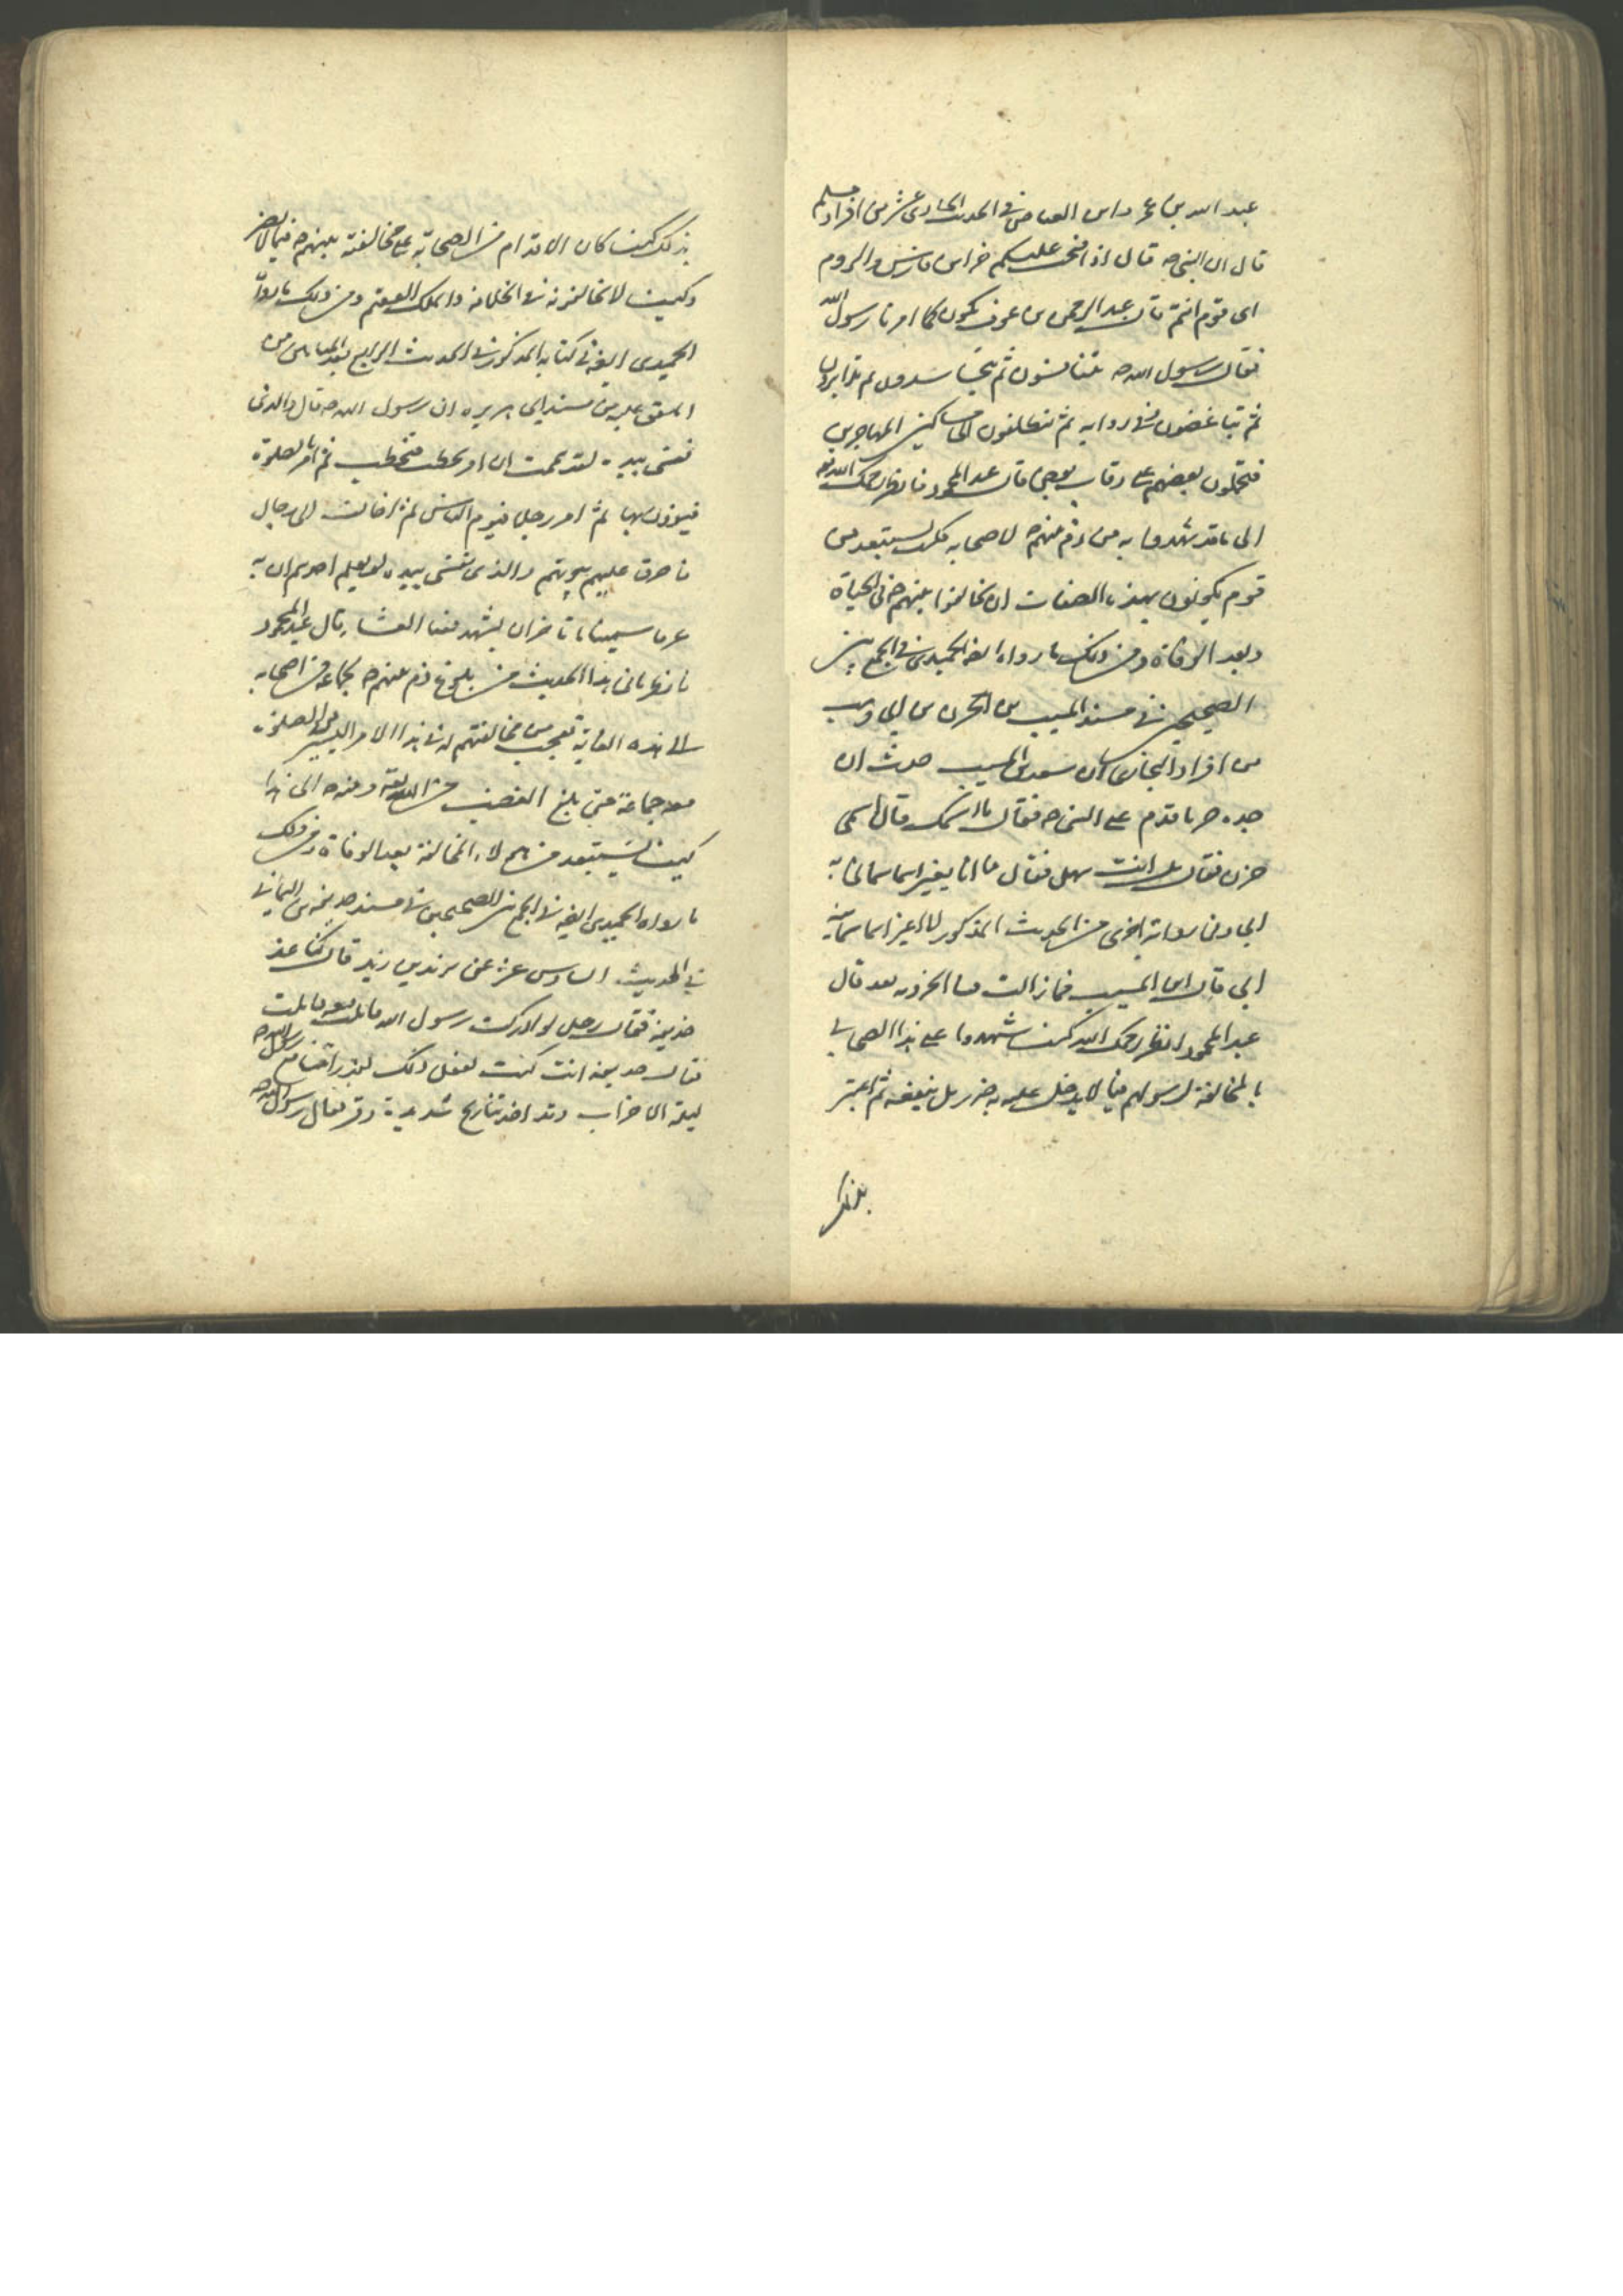 عبد الله بن عمرو ابن العاص في الحديث الحادي عشر من افراد مسلم
قال ان النبي ص قال اذا فتحت عليكم خزاين فارس والروم
اي قوم انتم قال عبد الرحمن بن عوف نكون كما امرنا رسول الله
فقال رسول الله ص تتنافسون ثم تتحاسدون ثم تتدابرون
ثم تتباغضون وفي رواية ثم تنطلقون الى مساكين المهاجرين
فتحملون بعضهم على رقاب بعض قال عبد المحمود فانظر رحمك الله
الى ما قد شهدوا به من ذم نبيهم ص لاصحابه فكيف يستبعد من
قوم يكونون بهذه الصفات ان يخالفوا نبيهم ص في الحياة
وبعد الوفاة ومن ذلك ما رواه ايضا الحميدي في الجمع بين
الصحيحين في مسند المسيب بن الحزن بن ابي وهب
من افراد البخاري قال ان سعيد بن المسيب حدث ان
جده حزنا قدم على النبي ص فقال ما اسمك قال اسمي
حزن فقال بل انت سهل فقال ما انا بغير اسما سمانيه
ابي وفي رواية اخرى من الحديث المذكور لا اغير اسما سمانيه
ابي قال ابن المسيب فما زالت فينا الحزونة بعد قال
عبد المحمود انظر رحمك الله كيف شهدوا على هذا الصحابي
بالمخالفة لرسولهم فيما لا يدخل عليه به ضرر بل ينفعه ثم اعتبر
بذلك
بذلك كيف كان الاقدام من الصحابة على مخالفة نبيهم ص فيما لا يضر
وكيف لا يخالفونه في الخلافة والملك العقيم ومن ذلك ما رواه
الحميدي ايضا في كتابه المذكور في الحديث الرابع بعد المائة من
المتفق عليه من مسند ابي هريره ان رسول الله ص قال والذي
نفسي بيده لقد هممت ان امر بحطب فيحطب ثم امر بالصلوة
فيؤذن بها ثم امر رجلا فيوم الناس ثم اخالف الى رجال
فاحرق عليهم بيوتهم والذي نفسي بيده لو يعلم احدهم انه
عرقا سمينا او مرماتان لشهد معنا العشاء قال عبد المحمود
فانظر ما في هذا الحديث من بلوغ ذم نبيهم ص لجماعة من اصحابه
الى هذه الغاية تعجب من مخالفتهم له في هذا الامر اليسير من الصلوة
معه جماعة حتى بلغ الغضب من الله تعالى ومنه ص الى هذا
كيف يستبعد من هؤلاء المخالفة بعد الوفاة ومن ذلك
ما رواه الحميدي ايضا في الجمع بين الصحيحين في مسند حذيفة بن اليماني
في الحديث السادس عشر عن يزيد بن زيد قال كنا عند
حذيفة فقال رجل لو ادركت رسول الله قاتلت معه فابليت
فقال حذيفة انت كنت تفعل ذلك لقد رايتنا مع رسول الله ص
ليلة الاحزاب وقد اخذتنا ريح شديدة وقر فقال رسول الله ص